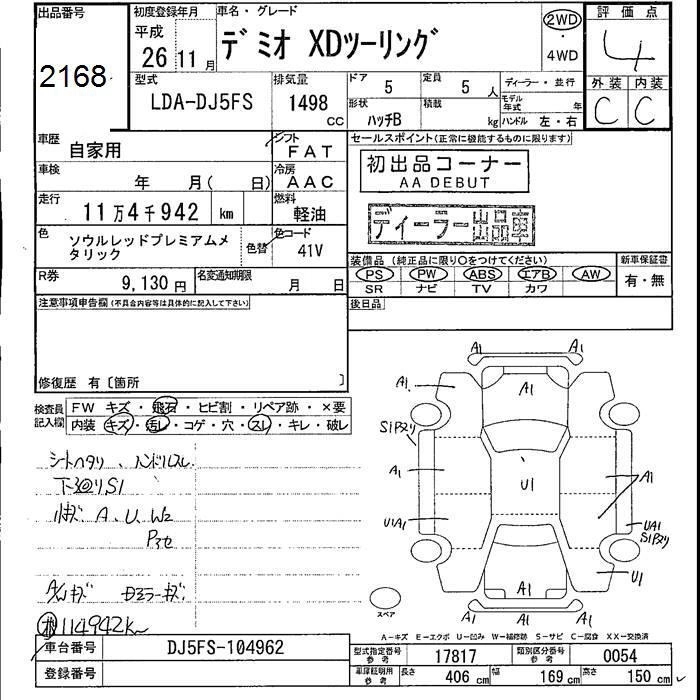 出品番号
2168
初度登録年月
平成
26年11月
車名・グレード
デミオ XDツーリング
2WD
・
4WD
評価点
4
外装 内装
C C
型式
LDA-DJ5FS
排気量
1498
CC
ドア
5
定員
5人
ディーラー・並行
形状
ハッチB
積載
kg
モデル年式 年
ハンドル 左・右
車歴
自家用
シフト
FAT
車検
年 月( 日)
冷房
AAC
走行
11万4千942 km
燃料
軽油
色
ソウルレッドプレミアムメタリック
色替
色コード
41V
R券
9,130円
名変通知期限
月 日
セールスポイント(正常に機能するものに限ります)
初出品コーナー
AA DEBUT
ディーラー出品車
装備品(純正品に限り○をつけてください)
PS PW ABS エアB AW
SR ナビ TV カワ
新車保証書
有・無
後日品
注意事項申告欄(不具合内容等は具体的に記入して下さい)
修復歴 有〔箇所 〕
検査員記入欄
FW キズ・飛石・ヒビ割・リペア跡・×要
内装・キズ・汚レ・コゲ・穴・スレ・キレ・破レ
シートヘタリ、ハンドルスレ
下廻りS1
A、U、W2
A1 A1
A1 A1
A1 A1
U1
U1A1 UA1
U1
A1
A1 A1
スペア
A-キズ E-エクボ U-凹み W-補修跡 S-サビ C-腐食 XX-交換済
114942K
車台番号
DJ5FS-104962
登録番号
型式指定番号 参考
17817
類別区分番号 参考
0054
車庫証明用 参考
長さ
406 cm
幅
169 cm
高さ
150 cm